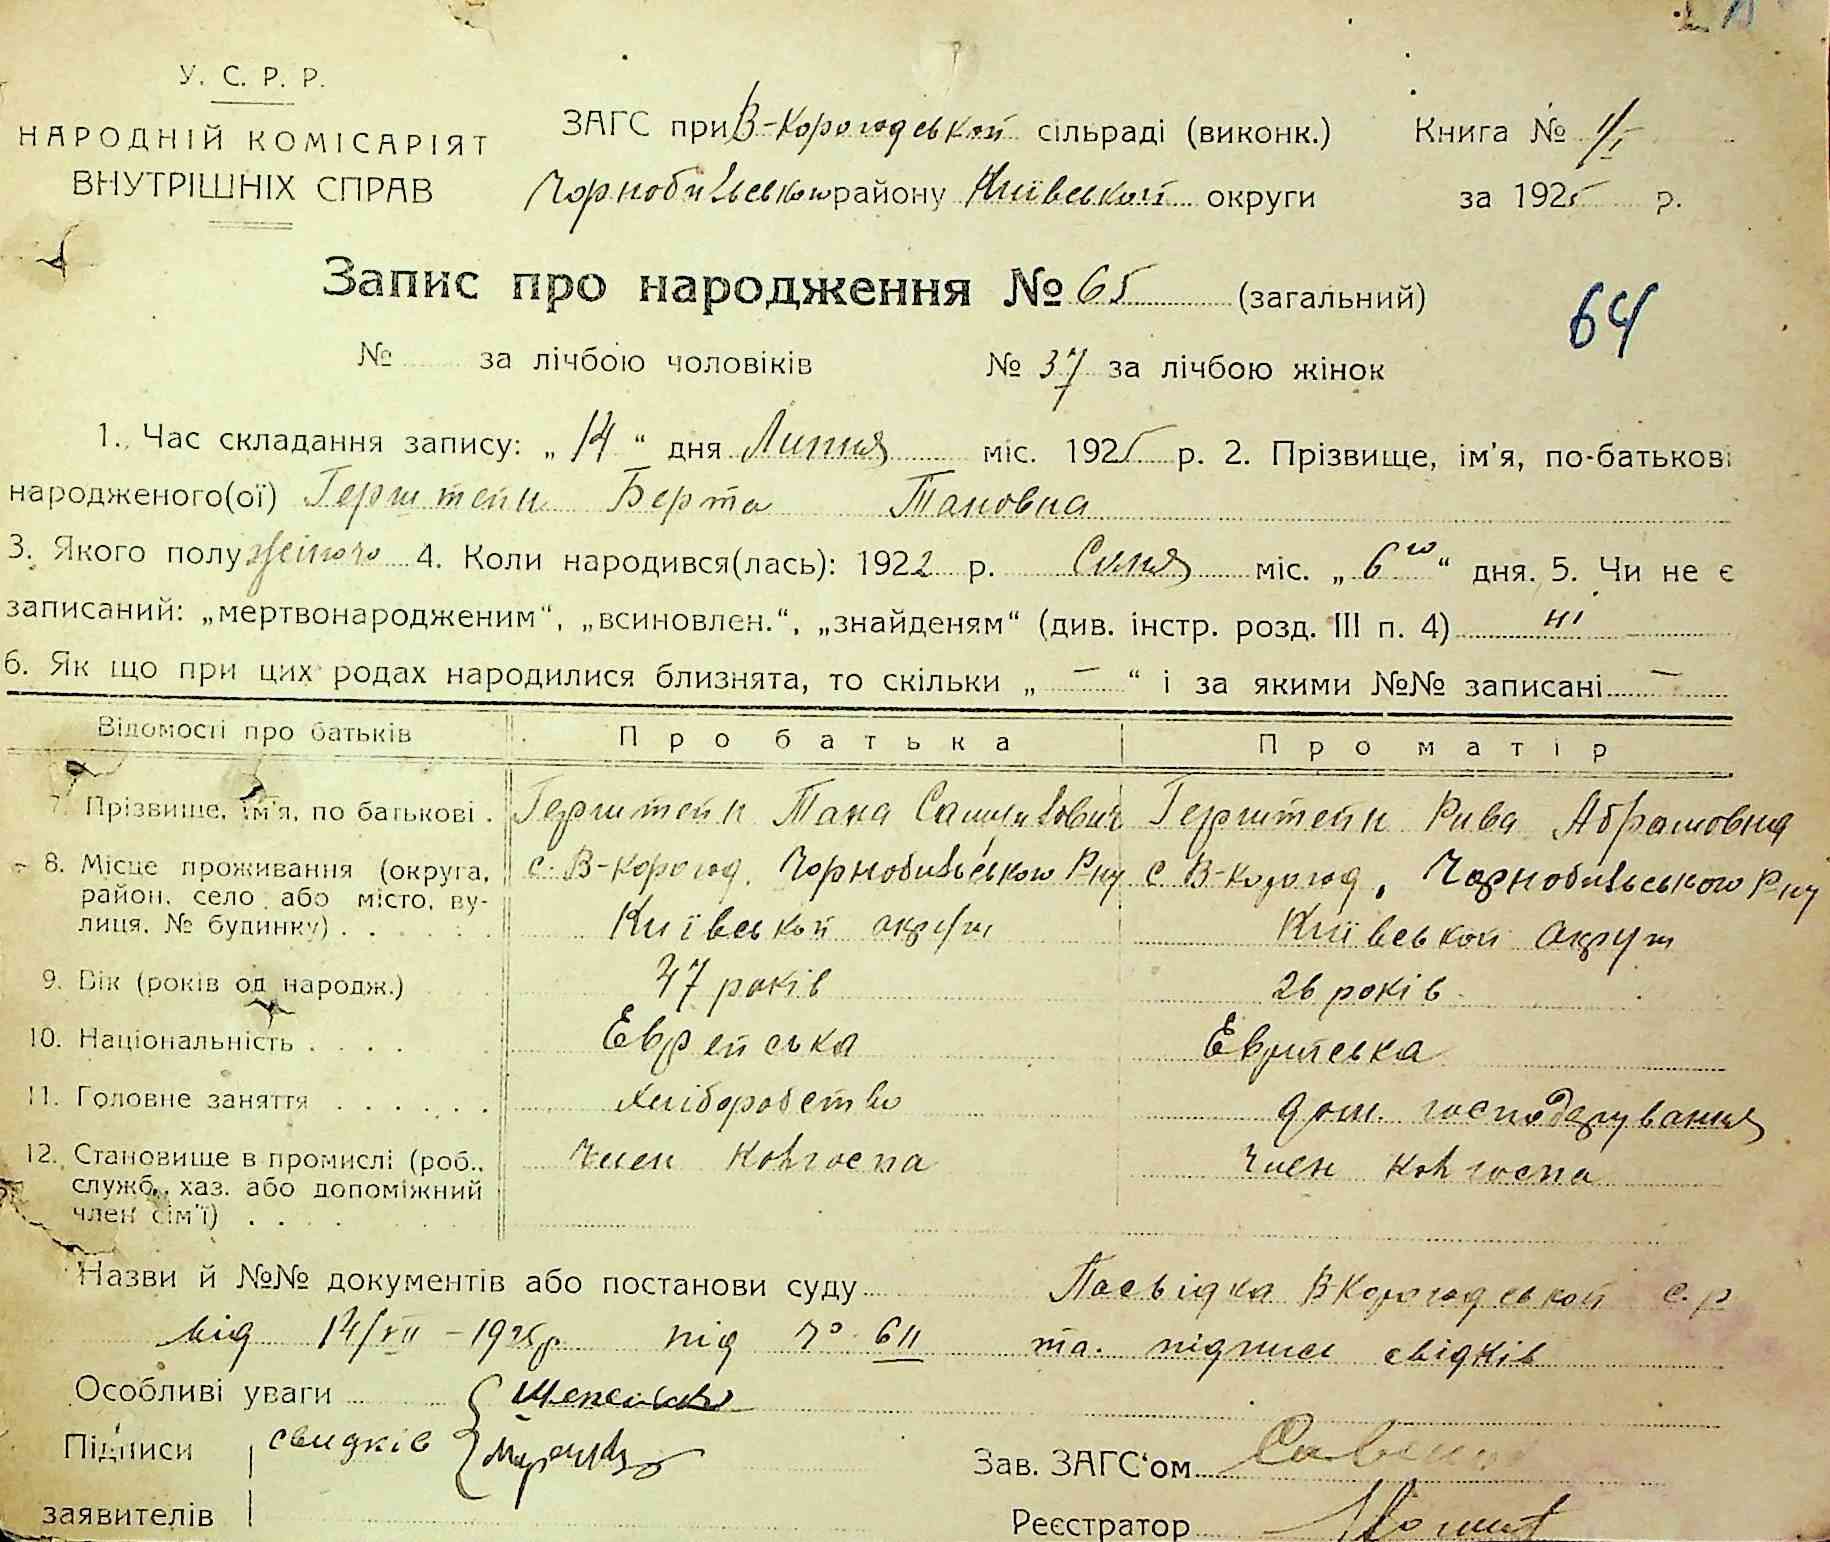 У. С. Р. Р.
НАРОДНІЙ КОМІСАРІЯТ
ВНУТРІШНІХ СПРАВ
ЗАГС при В-Корогодській сільраді (виконк.) Книга № 1/I
Чорнобильського району Київської округи за 1925 р.
Запис про народження № 65 (загальний)
64
№ за лічбою чоловіків № 37 за лічбою жінок
1. Час складання запису: „14“ дня Липня міс. 1925 р. 2. Прізвище, ім'я, по-батькові
народженого(ої) Герштейн Берта Тановна
3. Якого полу жіночо 4. Коли народився(лась): 1922 р. Січня міс. „6го“ дня. 5. Чи не є
записаний: „мертвонародженим“, „всиновлен.“, „знайденям“ (див. інстр. розд. III п. 4) ні
6. Як що при цих родах народилися близнята, то скільки „ — “ і за якими №№ записані —
Відомості про батьків Про батька Про матір
7. Прізвище, ім'я, по батькові . Герштейн Тана Самуилович Герштейн Рива Абрамовна
8. Місце проживання (округа, район, село або місто, вулиця, № будинку) . с. В-Корогод, Чорнобильського Рну Київської округи с В-Корогод, Чорнобильського Рну Київської округи
9. Вік (років од народж.) 37 років 26 років
10. Національність . . . . Еврейська Еврейська
11. Головне заняття . . . . . . . хліборобство дом. господарування
12. Становище в промислі (роб., служб., хаз. або допоміжний член сім'ї) . . . . член колгоспа член колгоспа
Назви й №№ документів або постанови суду Посьвідка В-Корогодської с.р
від 14/VII – 1925р під № 611 та. підписи свідків
Особливі уваги
Підписи свидків
Зав. ЗАГС‘ом
заявителів
Реєстратор